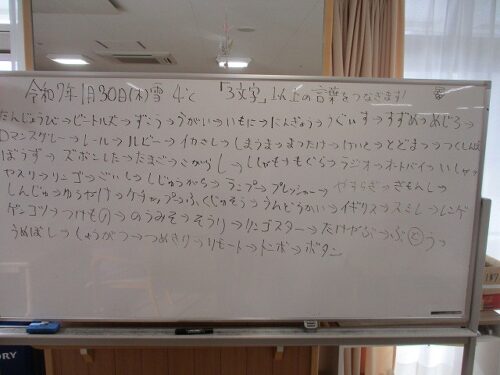 令和7年1月30日(木)雪 4℃ 「3文字」以上の言葉をつなぎます!
たんじょうび→ビートルズ→ずこう→うがい→いもに→にんぎょう→うぐいす→すずめ→めじろ→
ロマンスグレー→レール→ルビー→イカさし→しまうま→まつたけ→けいと→とどまつ→つくしんぼ
ぼうず→ズボンした→たまご→こがらし→ししゃも→もぐら→ラジオ→オートバイ→いしや→
ヤスリ→リンゴ→ごいし→しじゅうから→ランプ→プレッシャー→やすらぎ→ぎもんし→
しんじゅ→ゆうやけ→ケチャップ→ふくじゅそう→うんどうかい→イギリス→スミレ→レンゲ
ゲンコツ→つけもの→のうみそ→そうり→リンゴスター→たけやぶ→ぶどう→
うめぼし→しょうがつ→つめきり→リモート→トンボ→ボタン